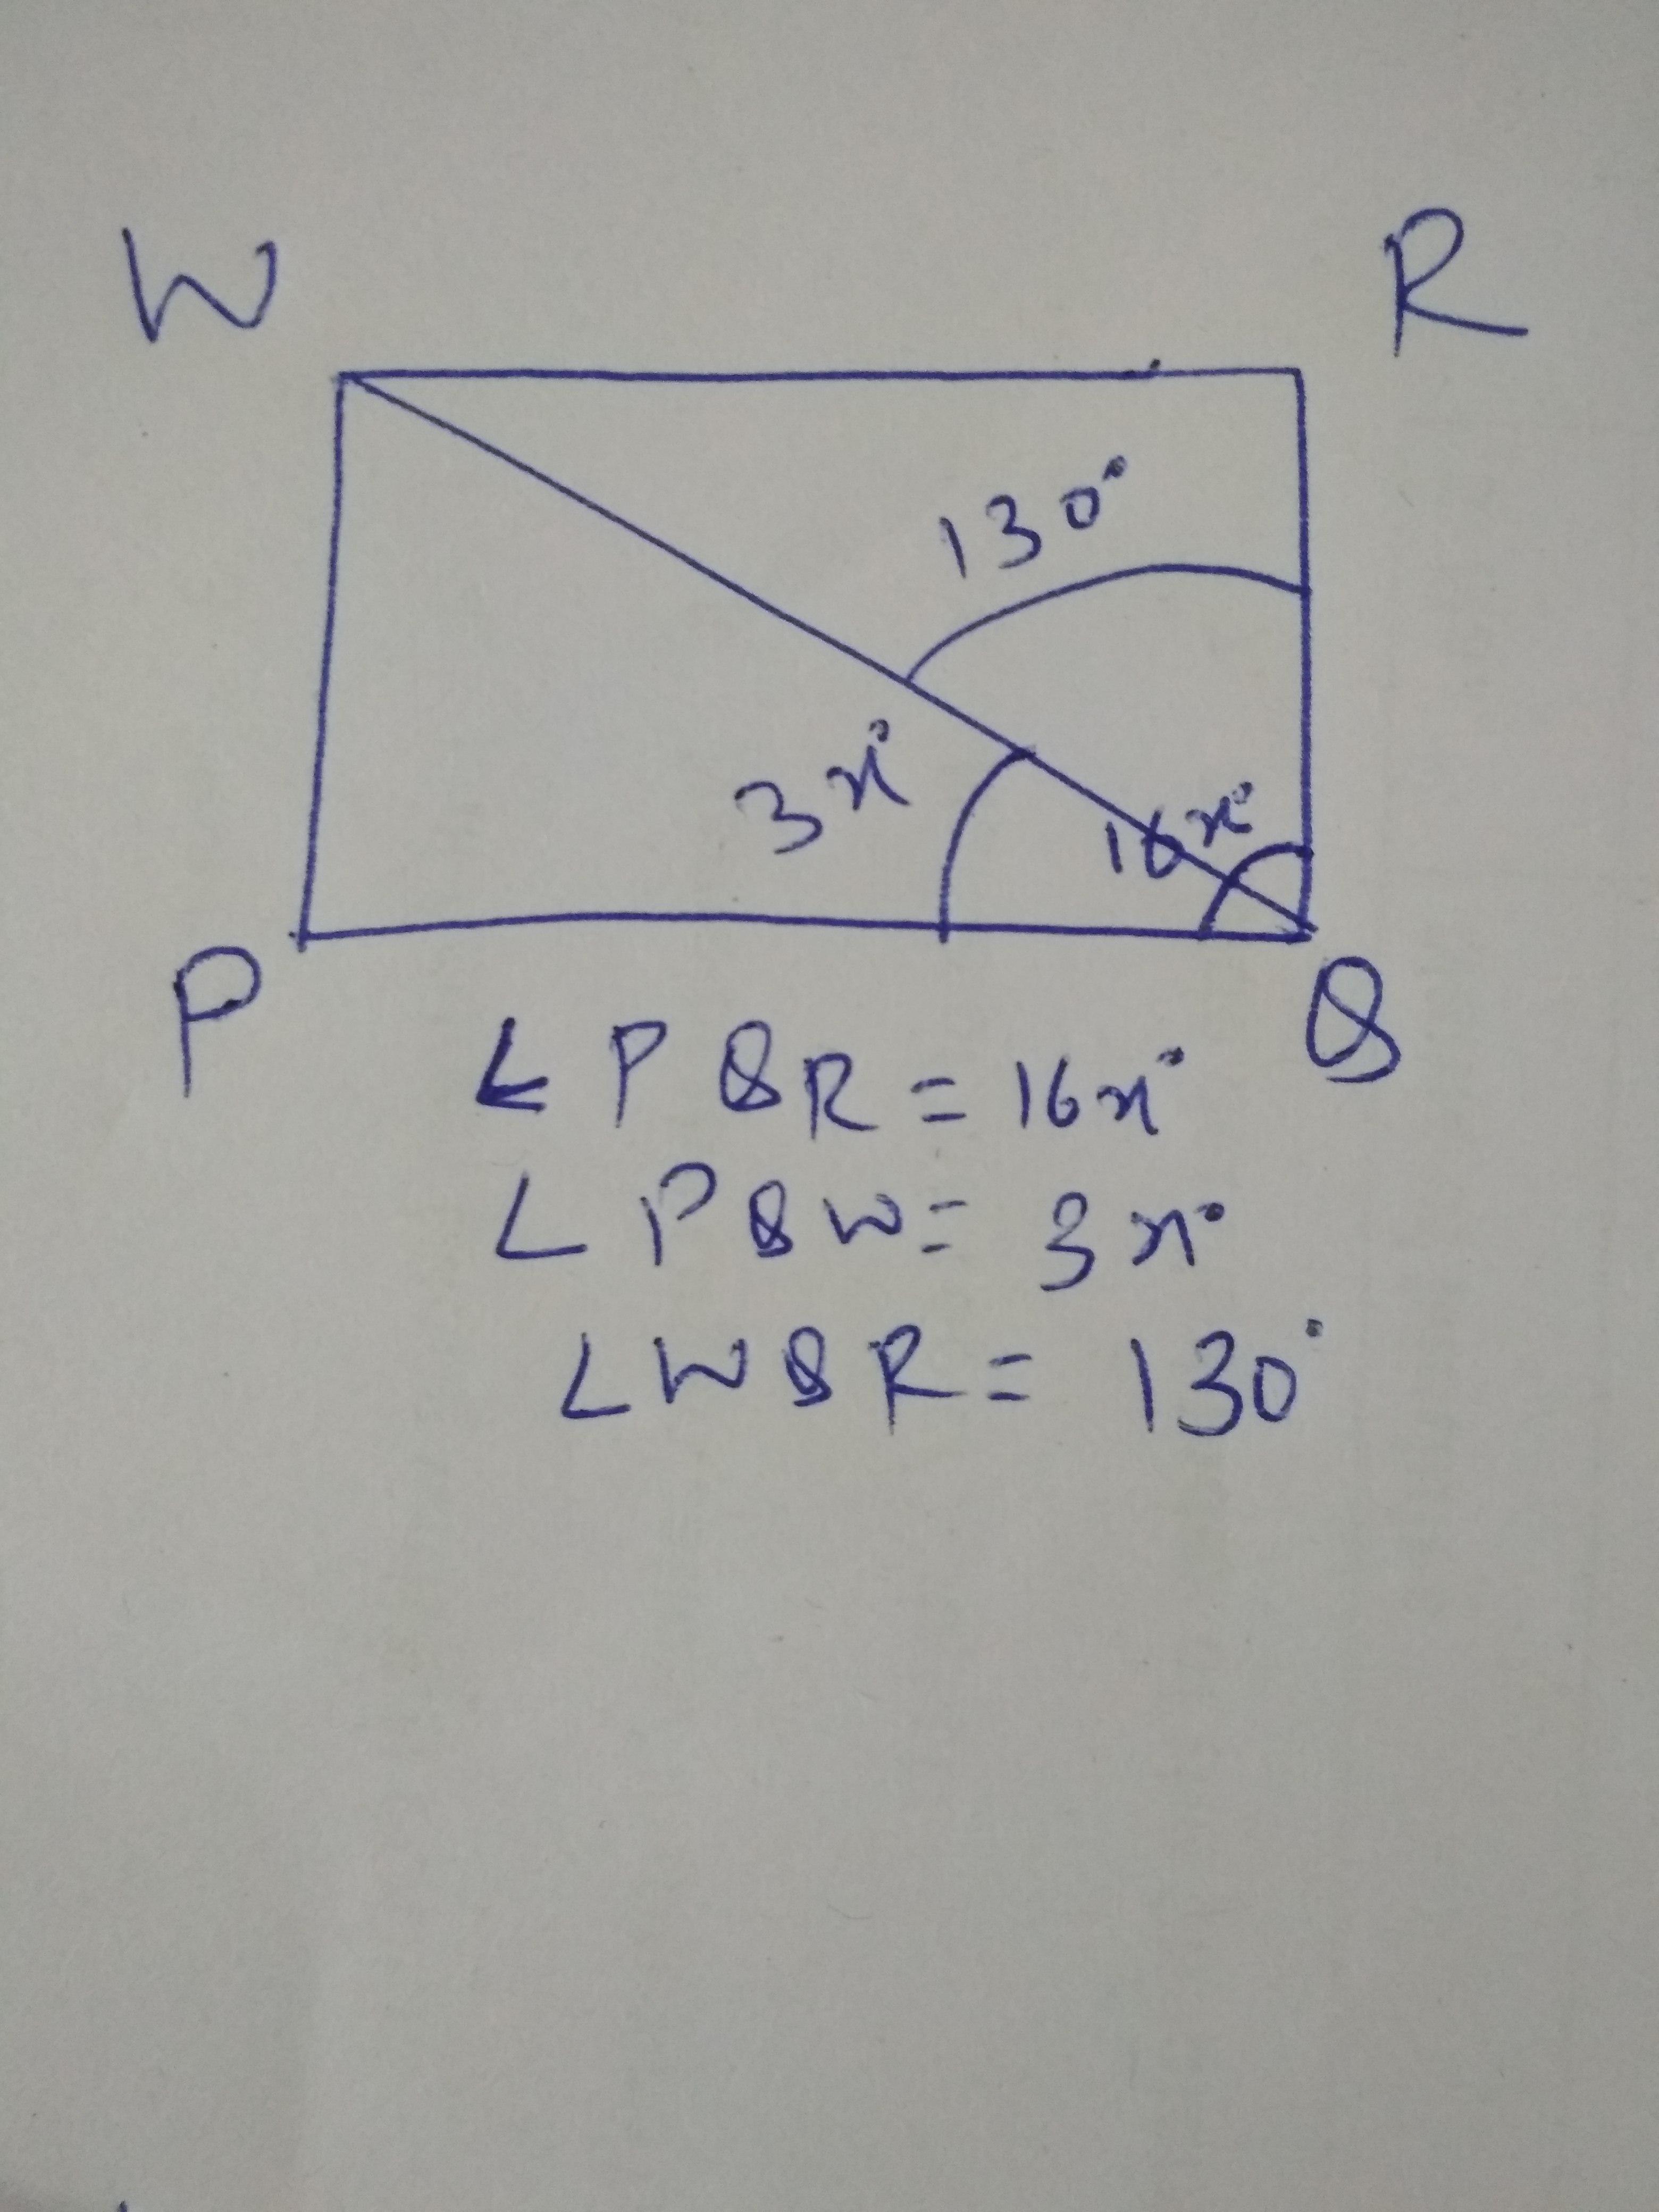 W R
130°
3x°
16x°
P Q
∠PQR = 16x°
∠PQW = 3x°
∠WQR = 130°